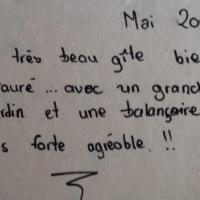 Mai 20
très beau gîte bie
auré ... avec un grand
rdin et une balançoire
s forte agréable. !!